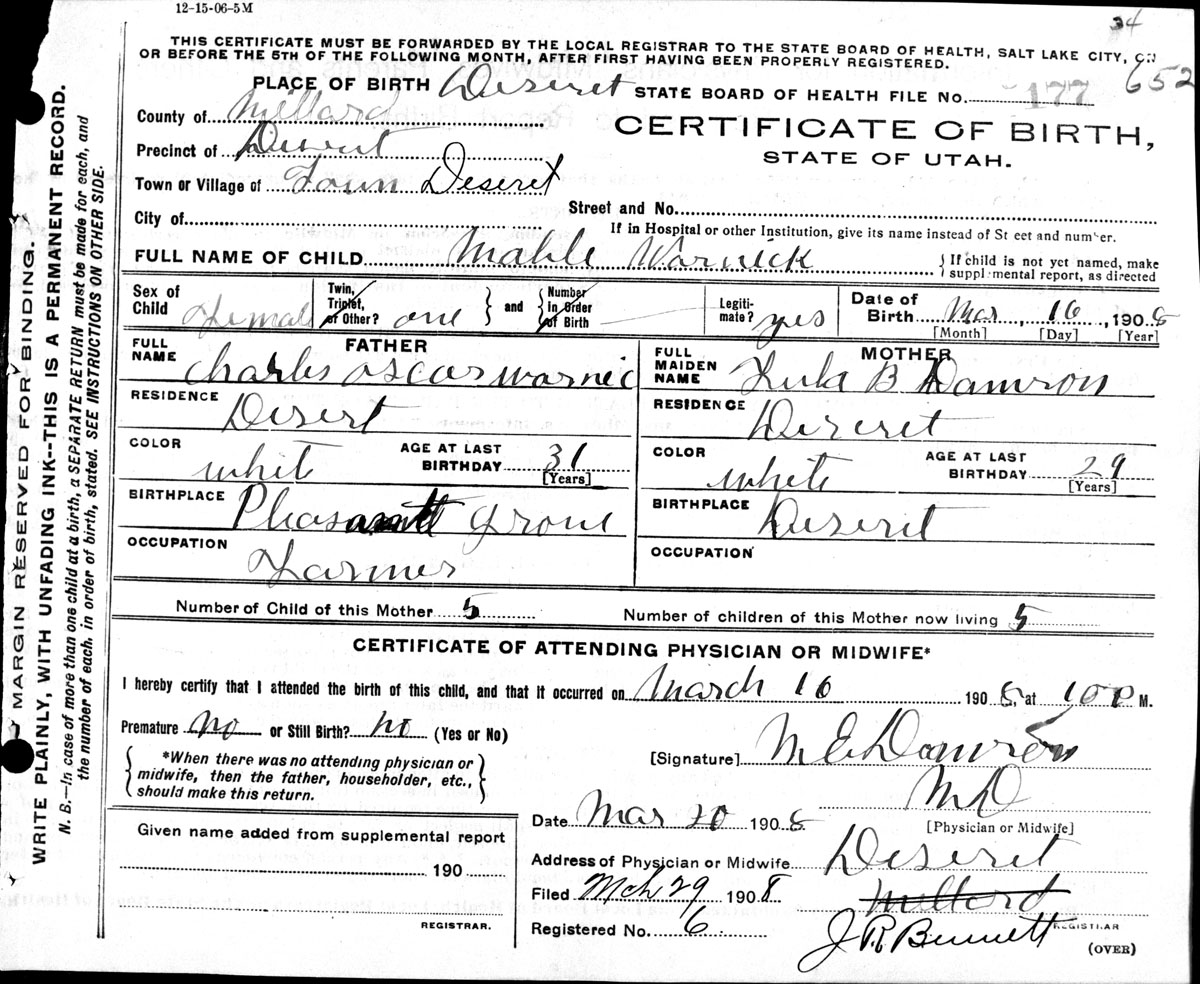 12-15-06-5M
34
THIS CERTIFICATE MUST BE FORWARDED BY THE LOCAL REGISTRAR TO THE STATE BOARD OF HEALTH, SALT LAKE CITY, ON
OR BEFORE THE 5TH OF THE FOLLOWING MONTH, AFTER FIRST HAVING BEEN PROPERLY REGISTERED.
652
PLACE OF BIRTH Deseret STATE BOARD OF HEALTH FILE NO. 177
County of Millard
CERTIFICATE OF BIRTH,
STATE OF UTAH.
Precinct of Deseret
Town or Village of Town Deseret
Street and No.
City of
If in Hospital or other Institution, give its name instead of Street and number.
FULL NAME OF CHILD Mable Warnick
{If child is not yet named, make supplemental report, as directed
Sex of Child Female
Twin, Triplet, or Other? one } and { Number In Order of Birth
Legitimate? yes
Date of Birth Mar, 16, 1908
[Month] [Day] [Year]
FATHER
FULL NAME Charles Oscar Warnic
RESIDENCE Desert
COLOR whit
AGE AT LAST BIRTHDAY 31
[Years]
BIRTHPLACE Pleasant Grove
OCCUPATION Farmer
MOTHER
FULL MAIDEN NAME Lula B Damron
RESIDENCE Deseret
COLOR white
AGE AT LAST BIRTHDAY 29
[Years]
BIRTHPLACE Deseret
OCCUPATION
Number of Child of this Mother 5
Number of children of this Mother now living 5
CERTIFICATE OF ATTENDING PHYSICIAN OR MIDWIFE*
I hereby certify that I attended the birth of this child, and that it occurred on March 16 1908, at 10 P M.
Premature No or Still Birth? no (Yes or No)
{*When there was no attending physician or
midwife, then the father, householder, etc.,
should make this return.}
[Signature] M E Damron
MD
[Physician or Midwife]
Date Mar 20 1908
Address of Physician or Midwife Deseret
Millard
Filed Mch 29 1908
Registered No. 6
J R Bennett
REGISTRAR
(OVER)
Given name added from supplemental report
190
REGISTRAR.
MARGIN RESERVED FOR BINDING.
WRITE PLAINLY, WITH UNFADING INK--THIS IS A PERMANENT RECORD.
N. B.—In case of more than one child at a birth, a SEPARATE RETURN must be made for each, and
the number of each, in order of birth, stated. SEE INSTRUCTIONS ON OTHER SIDE.